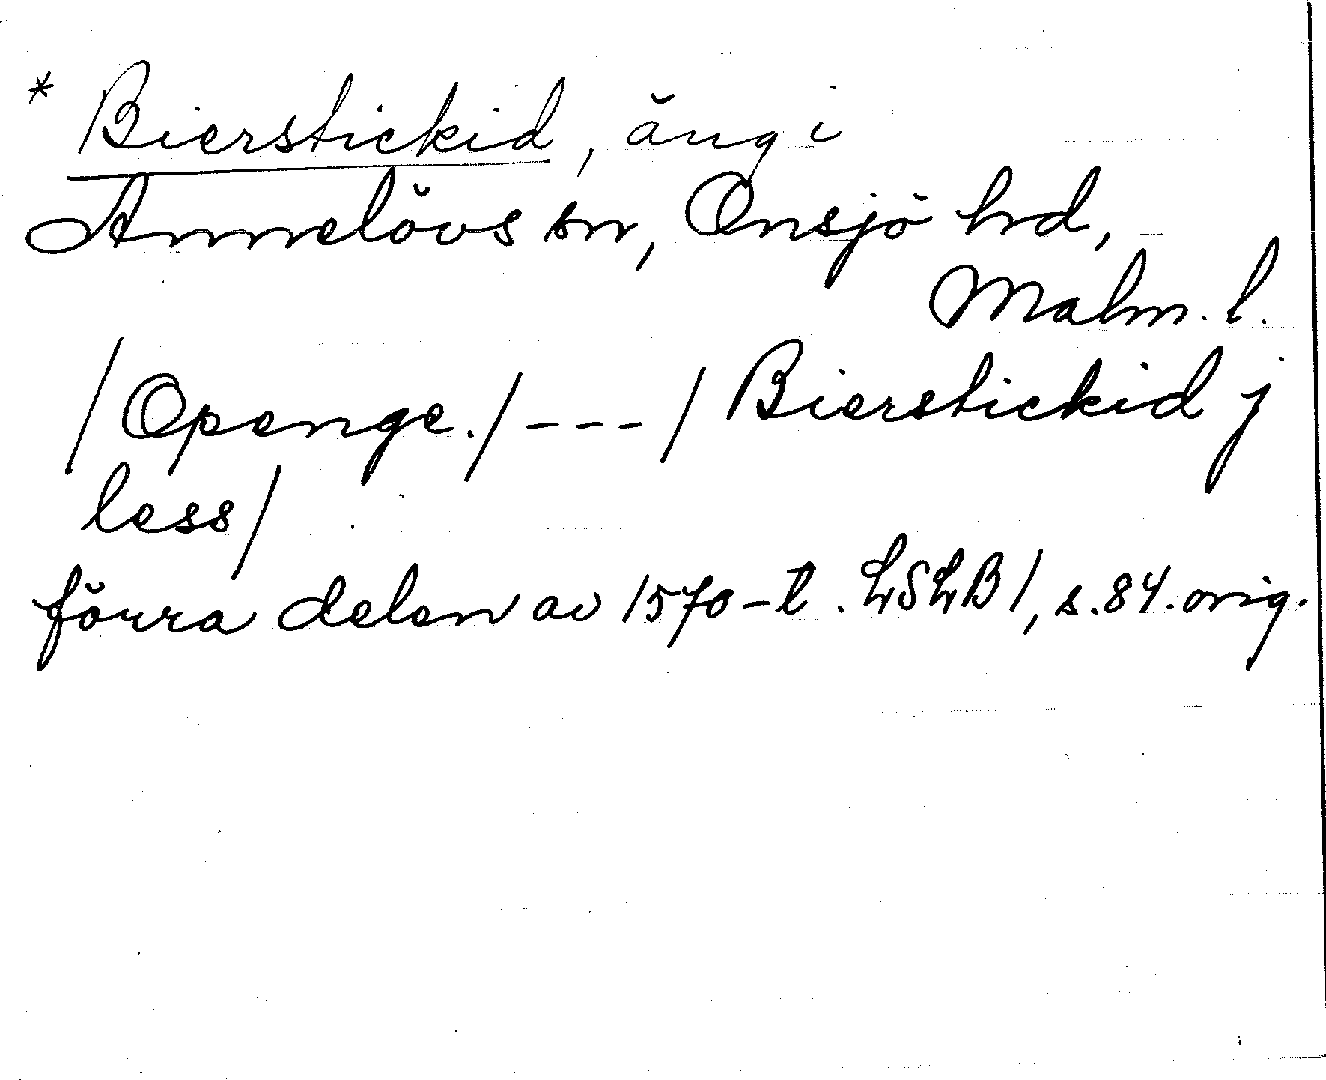 * Bierstickid, äng i
Annelövs sn, Onsjö hrd,
Malm. l.
/Openge./---/Bierstickid j
less/
förra delen av 1570-t. LSLB1, s.84. orig.